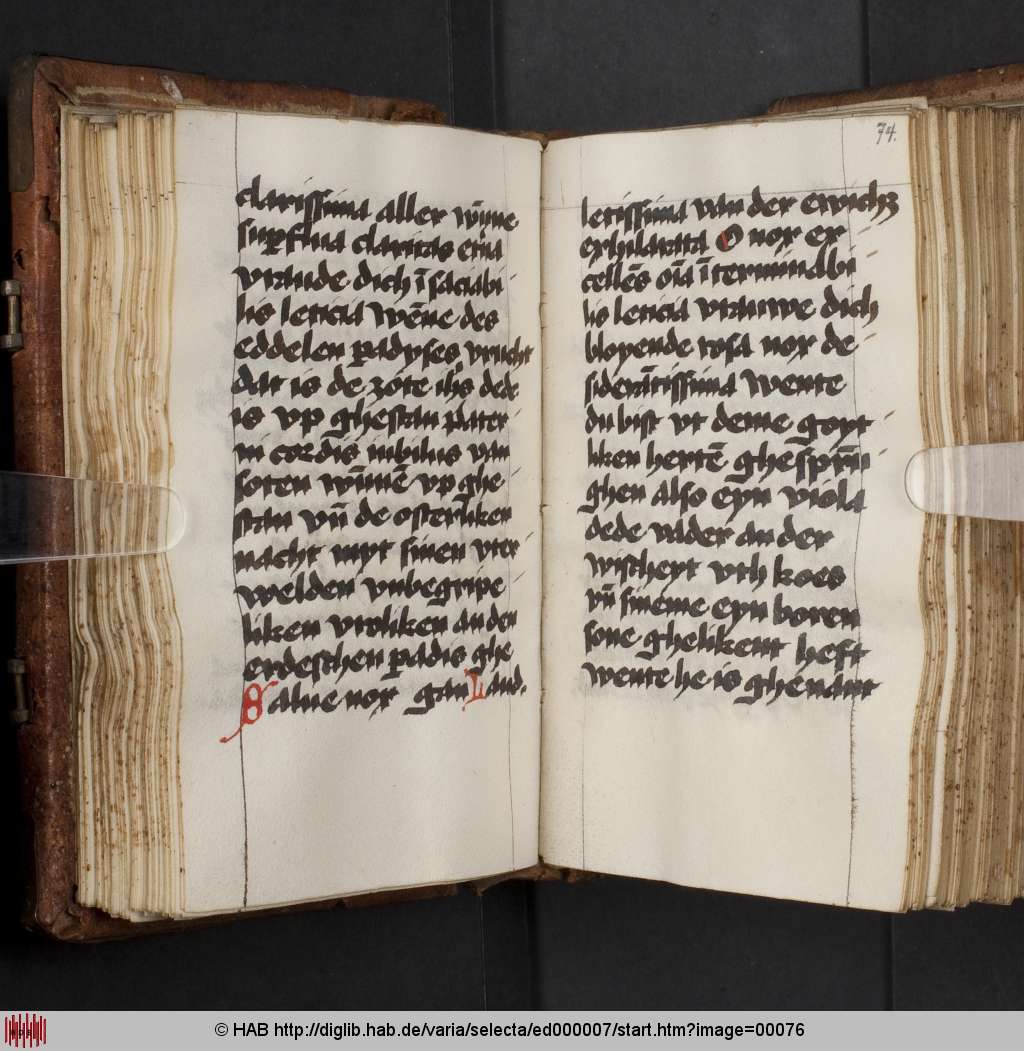 clarissima aller wūne
suꝑfina claritas etīa
vraude dich ī saciabi
lis leticia wēne des
eddelen padyses vrucht
dat is de zote ihs dede
is vp ghestan pater
ni cordis iubilus van
soten wūnē vp ghe
stan vn̄ de osterliken
nacht myt sinen vter
welden vnbegripe
liken vroliken an den
erdeschen padis ghe
Salue nox gau Laud.
74.
letissima van der ewichꝫ
exhilarata O nox ex
cellēs oīa ī terminabi
lis leticia vrauwe dich
bloyende rosa nox de
siderātissima wente
du bist vt deme goyt
liken hertē ghesprūn
ghen also eyn viola
dede vader an der
wischeyt vth koes
vn̄ sineme eyn boren
sone ghelikent heft
wente he is ghenant
© HAB http://diglib.hab.de/varia/selecta/ed000007/start.htm?image=00076